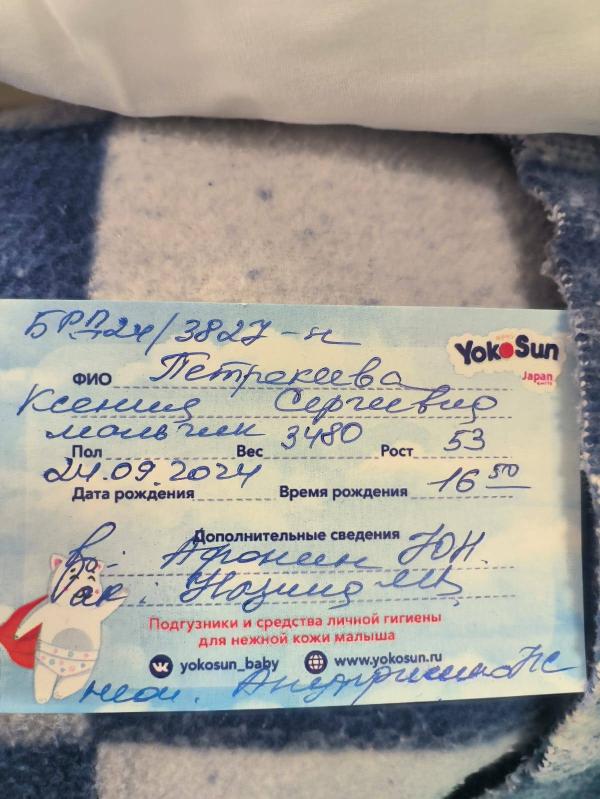 БРП-24/3827-н
YokoSun
Japan
ФИО Петракеева
Ксения Сергеевна
мальчик 3480 53
Пол Вес Рост
24.09.2024 16 50
Дата рождения Время рождения
Дополнительные сведения
Вр.: Афонин Ю.Н.
Ак.:
Подгузники и средства личной гигиены
для нежной кожи малыша
yokosun_baby www.yokosun.ru
неон.